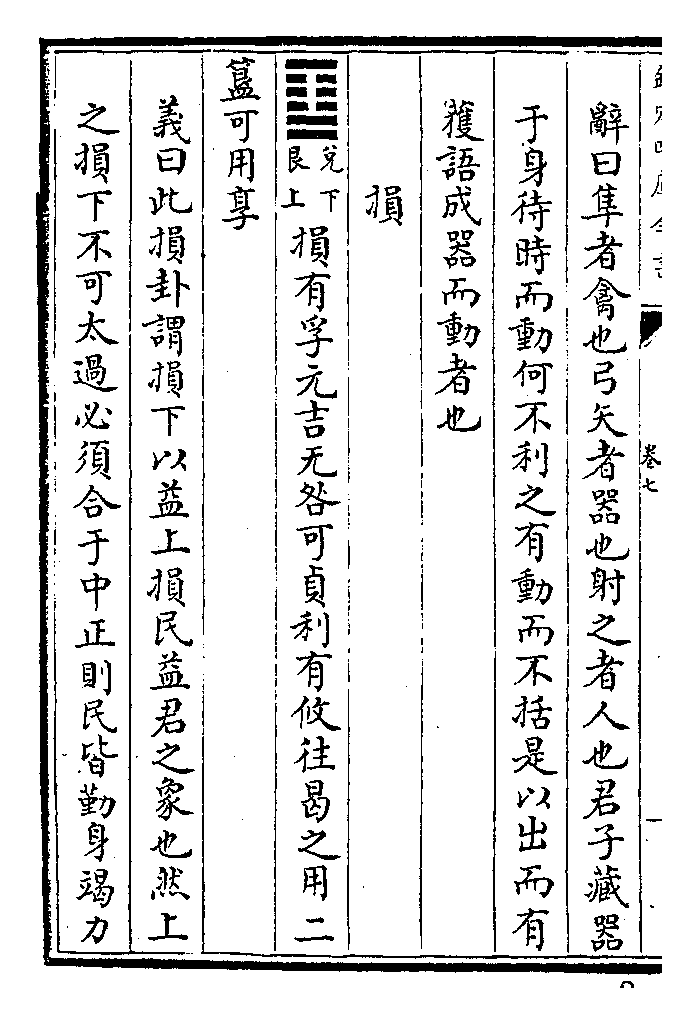 欽定四庫全書
卷七
辭曰隼者禽也弓矢者器也射之者人也君子藏器
于身待時而動何不利之有動而不括是以出而有
獲語成器而動者也
損
兌下
艮上
損有孚元吉无咎可貞利有攸往曷之用二
簋可用享
義曰此損卦謂損下以益上損民益君之象也然上
之損下不可太過必須合于中正則民皆勤身竭力